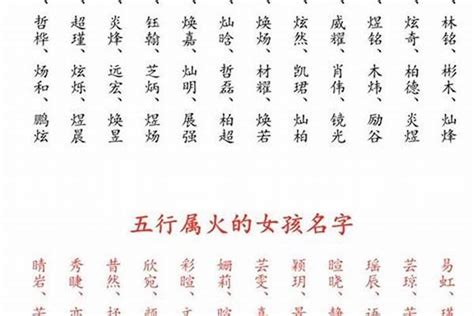 林铭、彬木、灿烽
奇、柏德、炎煜
煜铭、木炜、励谷
威耀、肖伟、镜光
炫然、凯珺、灿柏
焕炀、材耀、焕若
灿晗、哲磊、柏超
焕嘉、灿明、展强
钰翰、芝炳、煜炀
炎烽、远宏、焕昱
超瑾、炫烁、煜晨
哲桦、炀和、鹏炫
五行属火的女孩名字
易虹、
芸琼、
瑶辰、
暄晓、
颖玥、
芸雯、
姗莉、
彩暄、
欣宛、
昔然、
秀睫、
晴岩、